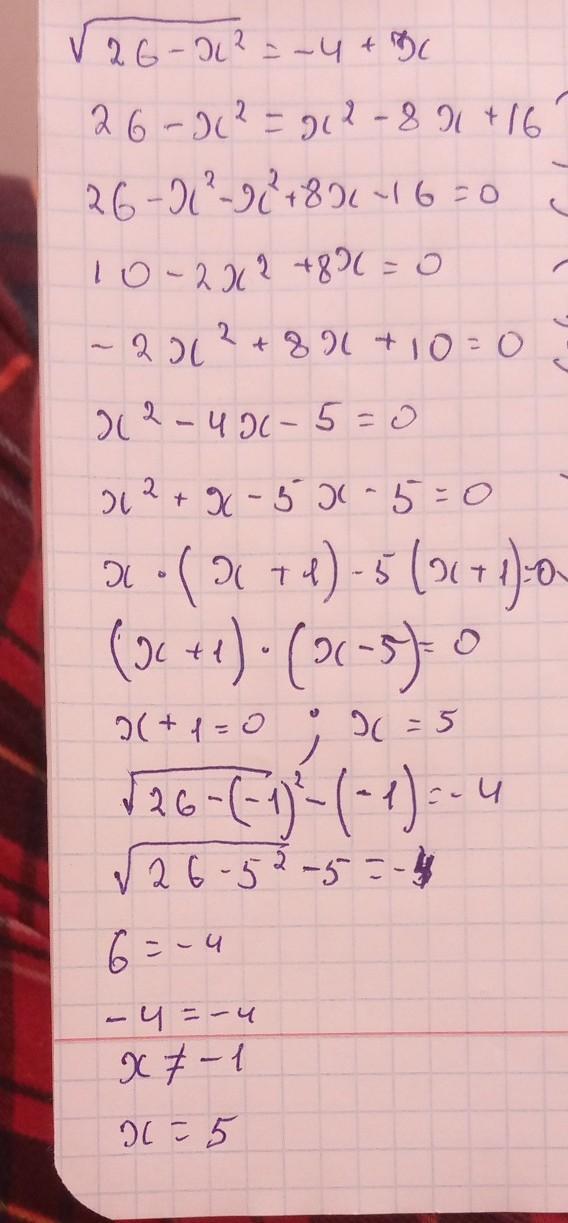 √26-x² = -4 + x
26 - x² = x² - 8x + 16
26 - x² - x² + 8x - 16 = 0
10 - 2x² + 8x = 0
-2x² + 8x + 10 = 0
x² - 4x - 5 = 0
x² + x - 5x - 5 = 0
x · (x + 1) - 5(x + 1) = 0
(x + 1) · (x - 5) = 0
x + 1 = 0 ; x = 5
√26 - (-1)² - (-1) = -4
√26 - 5² - 5 = -4
6 = -4
-4 = -4
x ≠ -1
x = 5